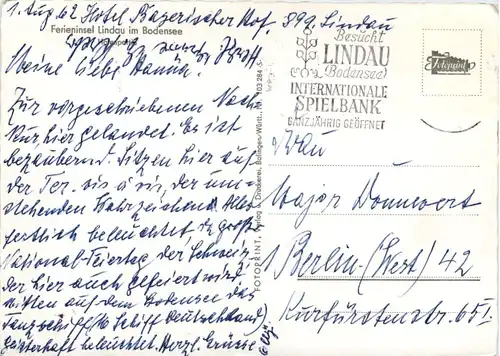 1. Aug 62 Hotel Bayerischer Hof, 899 Lindau
Ferieninsel Lindau im Bodensee
Meine liebe Hanna.
Zur vorgeschriebenen Nach-
kur hier gelandet. Es ist
bezaubernd. Sitzen hier auf
der Ter. vis á vis, der um-
stehenden Wahrzeichen. Alles
festlich beleuchtet, da große
National-Feiertag der Schweiz,
der hier auch gefeiert wird.
Mitten auf dem Bodensee das
Tanzschiff (Mo Schiff Deutschland)
beleuchtet. Herzl. Grüsse
FOTOPRINT, Verlag & Druckerei, Balingen-Württ.
Besucht
LINDAU
(Bodensee)
INTERNATIONALE
SPIELBANK
GANZJÄHRIG GEÖFFNET
Fotoprint
Frau
Major Donnwert
1 Berlin (West) 42
Kurfürstenstr. 65I.